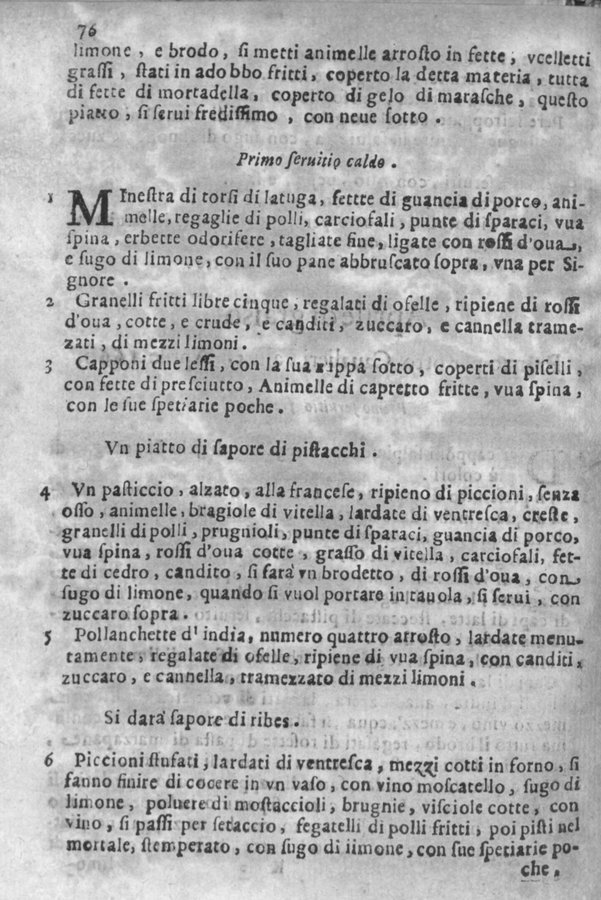 76
limone, e brodo, ſi metti animelle arroſto in fette, vcelletti
graſſi, ſtati in adobbo fritti, coperto la detta materia, tutta
di fette di mortadella, coperto di gelo di maraſche, queſto
piatto, ſi ſerui frediſſimo, con neue ſotto.
Primo ſeruitio caldo.
1 MIneſtra di torſi di latuga, fettte di guancia di porco, ani-
melle, regaglie di polli, carciofali, punte di ſparaci, vua
ſpina, erbette odorifere, tagliate fine, ligate con roſſi d'oua,
e ſugo di limone, con il ſuo pane abbruſcato ſopra, vna per Si-
gnore.
2 Granelli fritti libre cinque, regalati di ofelle, ripiene di roſſi
d'oua, cotte, e crude, e canditi, zuccaro, e cannella trame-
zati, di mezzi limoni.
3 Capponi due leſſi, con la ſua rippa ſotto, coperti di piſelli,
con fette di preſciutto, Animelle di capretto fritte, vua ſpina,
con le ſue ſpetiarie poche.
Vn piatto di ſapore di piſtacchi.
4 Vn paſticcio, alzato, alla franceſe, ripieno di piccioni, ſenza
oſſo, animelle, bragiole di vitella, lardate di ventreſca, creſte,
granelli di polli, prugnioli, punte di ſparaci, guancia di porco,
vua ſpina, roſſi d'oua cotte, graſſo di vitella, carciofali, fet-
te di cedro, candito, ſi farà vn brodetto, di roſſi d'oua, con
ſugo di limone, quando ſi vuol portare in tauola, ſi ſerui, con
zuccaro ſopra.
5 Pollanchette d'india, numero quattro arroſto, lardate menu-
tamente, regalate di ofelle, ripiene di vua ſpina, con canditi,
zuccaro, e cannella, tramezzato di mezzi limoni.
Si darà ſapore di ribes.
6 Piccioni ſtufati, lardati di ventreſca, mezzi cotti in forno, ſi
fanno finire di cocere in vn vaſo, con vino moſcatello, ſugo di
limone, poluere di moſtaccioli, brugnie, viſciole cotte, con
vino, ſi paſſi per ſetaccio, fegatelli di polli fritti, poi piſti nel
mortale, ſtemperato, con ſugo di limone, con ſue ſpetiarie po-
che,